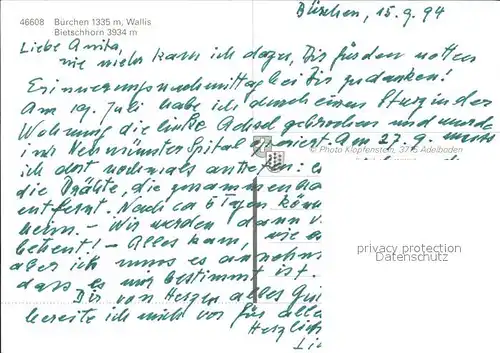 46608 Bürchen 1335 m, Wallis
Bietschhorn 3934 m
Bürchen, 15.9.94
Liebe Anita,
nie mehr kam ich dazu, Dir für den netten
Erinnerungsnachmittag bei Dir zu danken!
Am 19. Juli habe ich durch einen Sturz in der
Wohnung die linke Achsel gebrochen und wurde
im Neumünster Spital operiert. Am 27.9. muss
© Photo Klopfenstein, 3715 Adelboden
ich dort nochmals antreten:
die Drähte, die zusammen
entfernt. Nach ca 6 Tagen
heim. - Wir werden dann
betreut! - Alles kam, wie es
aber ich muss es annehmen
dass es mir bestimmt ist.
privacy protection
Datenschutz
Dir von Herzen alles Gute
bereite ich mich vor für alle
Herzlich